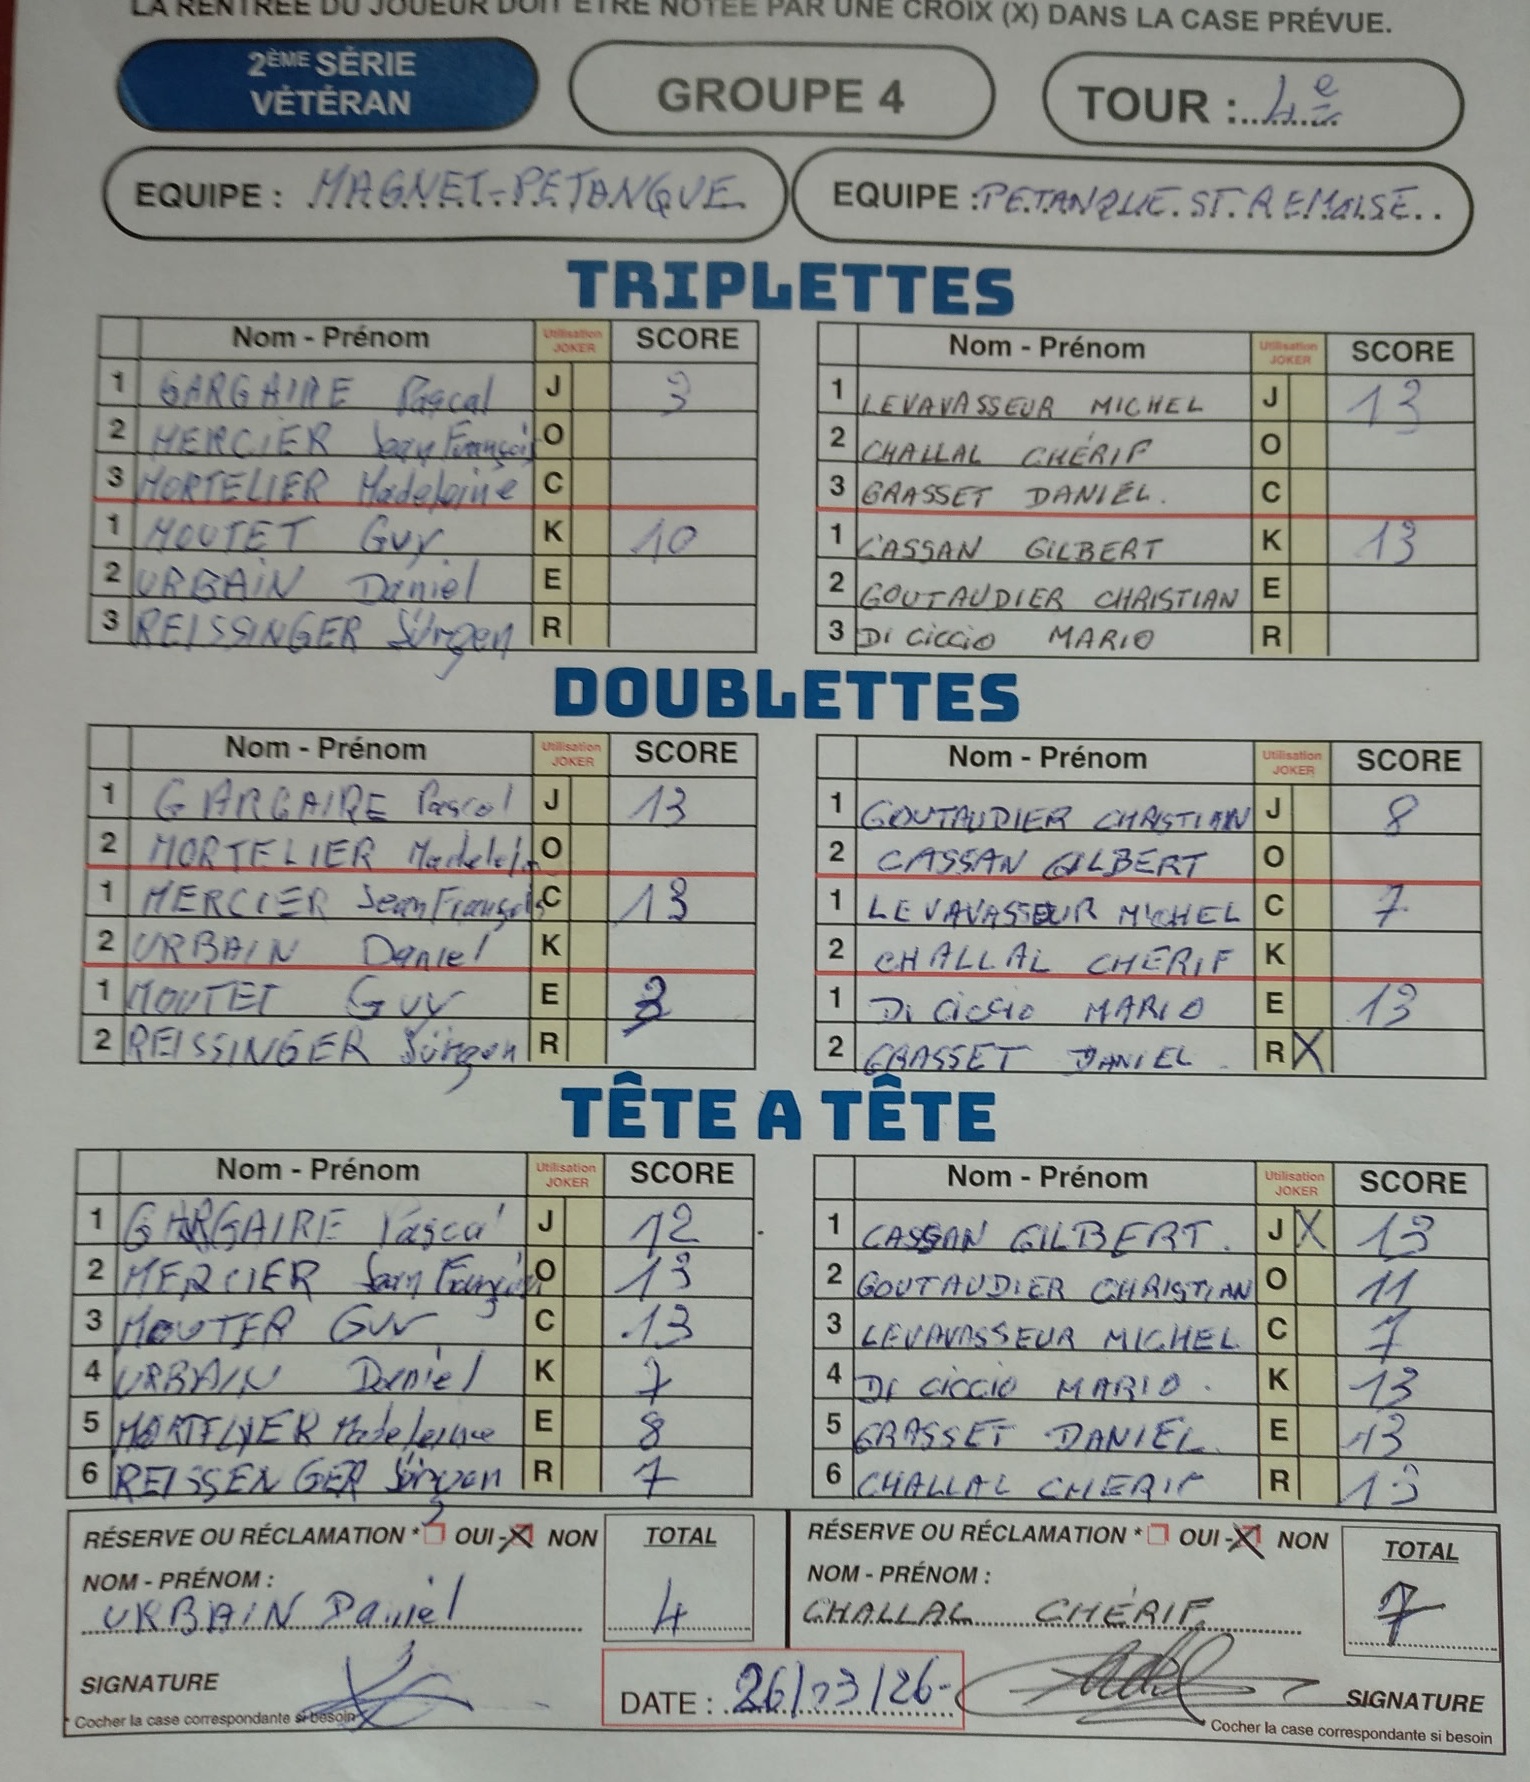 LA RENTRÉE DU JOUEUR DOIT ÊTRE NOTÉE PAR UNE CROIX (X) DANS LA CASE PRÉVUE.
2ÈME SÉRIE VÉTÉRAN GROUPE 4 TOUR : 4e
EQUIPE : MAGNET-PETANQUE EQUIPE : PETANQUE ST. REMOISE
TRIPLETTES
Nom - Prénom Utilisation JOKER SCORE Nom - Prénom Utilisation JOKER SCORE
1 GARGAIRE Pascal J 3 1 LEVAVASSEUR MICHEL J 13
2 MERCIER Jean François O 2 CHALLAL CHÉRIF O
3 MORTELIER Madeleine C 3 GRASSET DANIEL. C
1 MOUTET Guy K 10 1 CASSAN GILBERT K 13
2 URBAIN Daniel E 2 GOUTAUDIER CHRISTIAN E
3 REISSINGER Jürgen R 3 Di Ciccio MARIO R
DOUBLETTES
Nom - Prénom Utilisation JOKER SCORE Nom - Prénom Utilisation JOKER SCORE
1 GARGAIRE Pascal J 13 1 GOUTAUDIER CHRISTIAN J 8
2 MORTELIER Madelein O 2 CASSAN GILBERT O
1 MERCIER Jean François C 13 1 LEVAVASSEUR MICHEL C 7
2 URBAIN Daniel K 2 CHALLAL CHERIF K
1 MOUTET Guy E 1 Di Ciccio MARIO E 13
2 REISSINGER Jürgen R 2 GRASSET DANIEL R X
TÊTE A TÊTE
Nom - Prénom Utilisation JOKER SCORE Nom - Prénom Utilisation JOKER SCORE
1 GARGAIRE Pascal J 12 1 CASSAN GILBERT. J X 13
2 MERCIER Jean François O 13 2 GOUTAUDIER CHRISTIAN O 11
3 MOUTER Guy C 13 3 LEVAVASSEUR MICHEL C 7
4 URBAIN Daniel K 7 4 Di Ciccio MARIO. K 13
5 MORTELIER Madeleine E 8 5 GRASSET DANIEL E 13
6 REISSENGER Jürgen R 7 6 CHALLAL CHERIF R 13
RÉSERVE OU RÉCLAMATION * OUI - X NON TOTAL RÉSERVE OU RÉCLAMATION * OUI - X NON TOTAL
NOM - PRÉNOM : NOM - PRÉNOM :
URBAIN Daniel 4 CHALLAL CHÉRIF 7
SIGNATURE DATE : 26/03/26 SIGNATURE
* Cocher la case correspondante si besoin Cocher la case correspondante si besoin